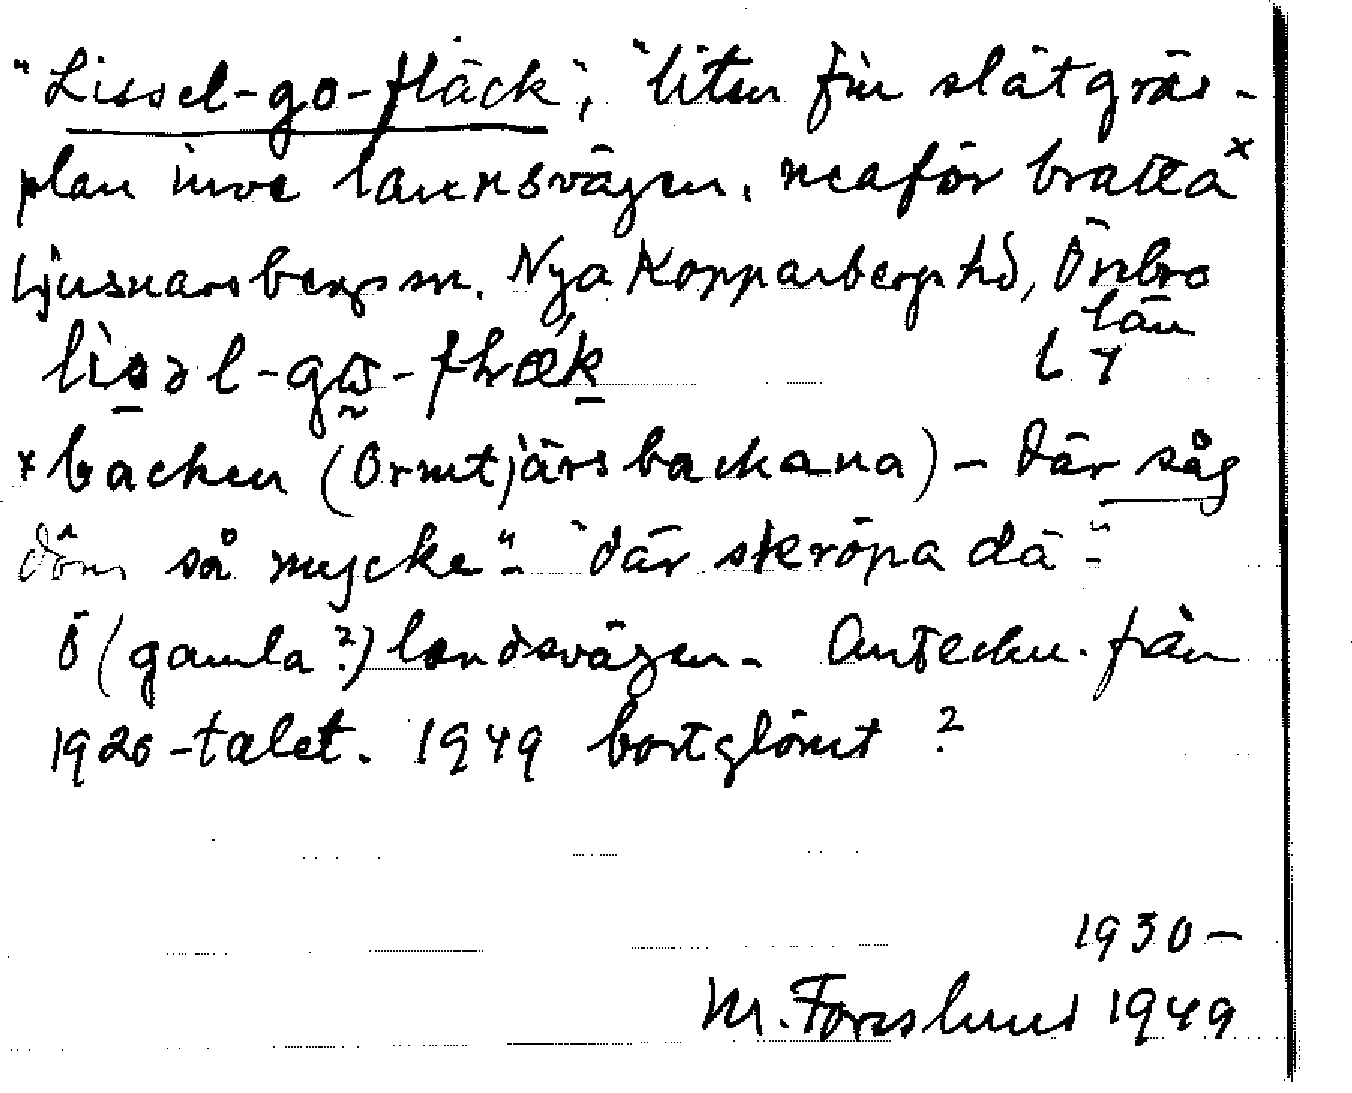 "Lissel-go-fläck", "liten fin slät gräs-
plan inve lannsvägen, neaför bratta x
Ljusnarsbergs sn. Nya Kopparbergs hd, Örebro
län
lisəl-gɷ-flæk
x backen (Ormtjärsbackana) - där såg
döm så mycke" - "där skröpa dä" -
Ö (gamla?) landsvägen. Anteckn. från
1920-talet. 1949 bortglömt?
1930-
M. Forslund 1949